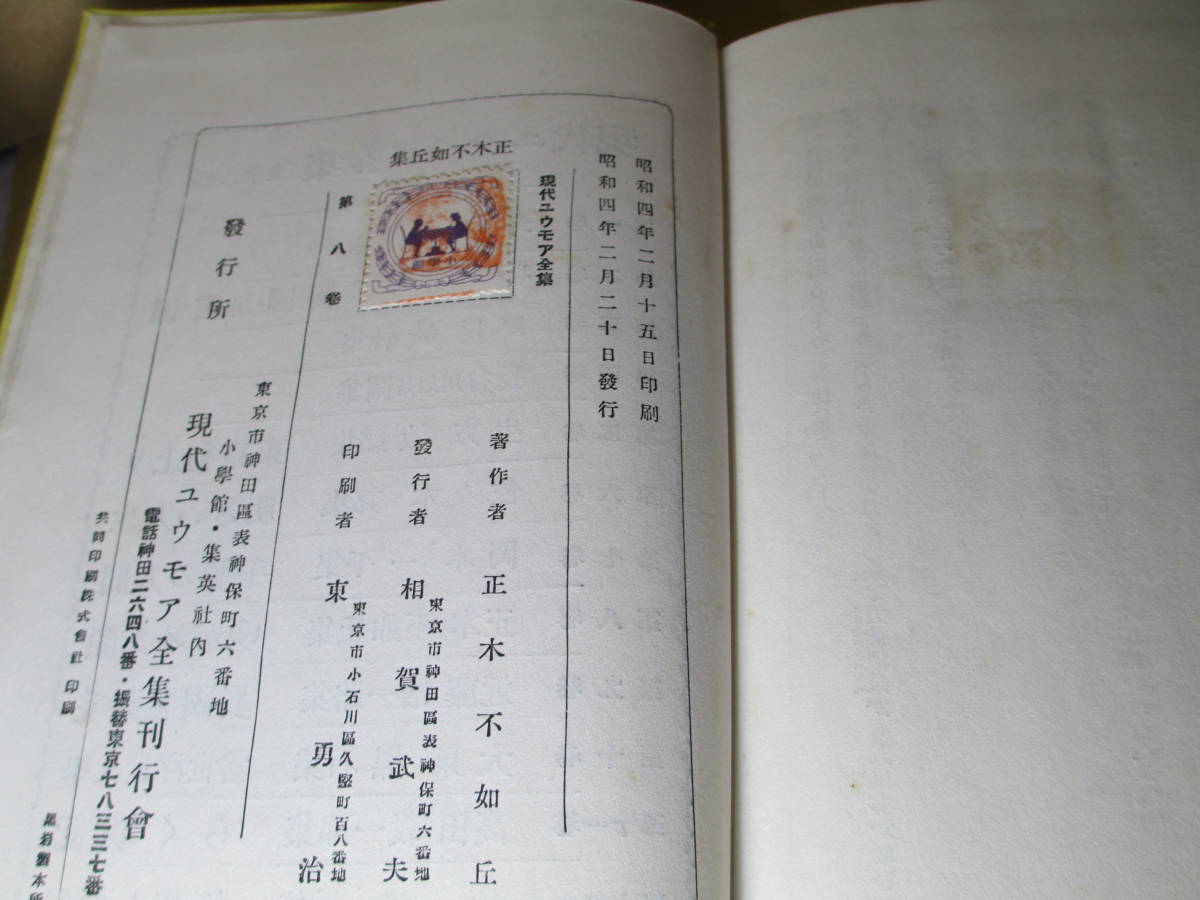 昭和四年二月十五日印刷
昭和四年二月二十日發行
現代ユウモア全集
正木不如丘集
第八卷
小學館
著作者 正木不如丘
東京市神田區表神保町六番地
發行者 相賀武夫
東京市小石川區久堅町百八番地
印刷者 東勇治
發行所
東京市神田區表神保町六番地
小學館・集英社內
現代ユウモア全集刊行會
電話神田二六四八番・振替東京七八三三七番
共同印刷株式會社印刷
黑岩製本所